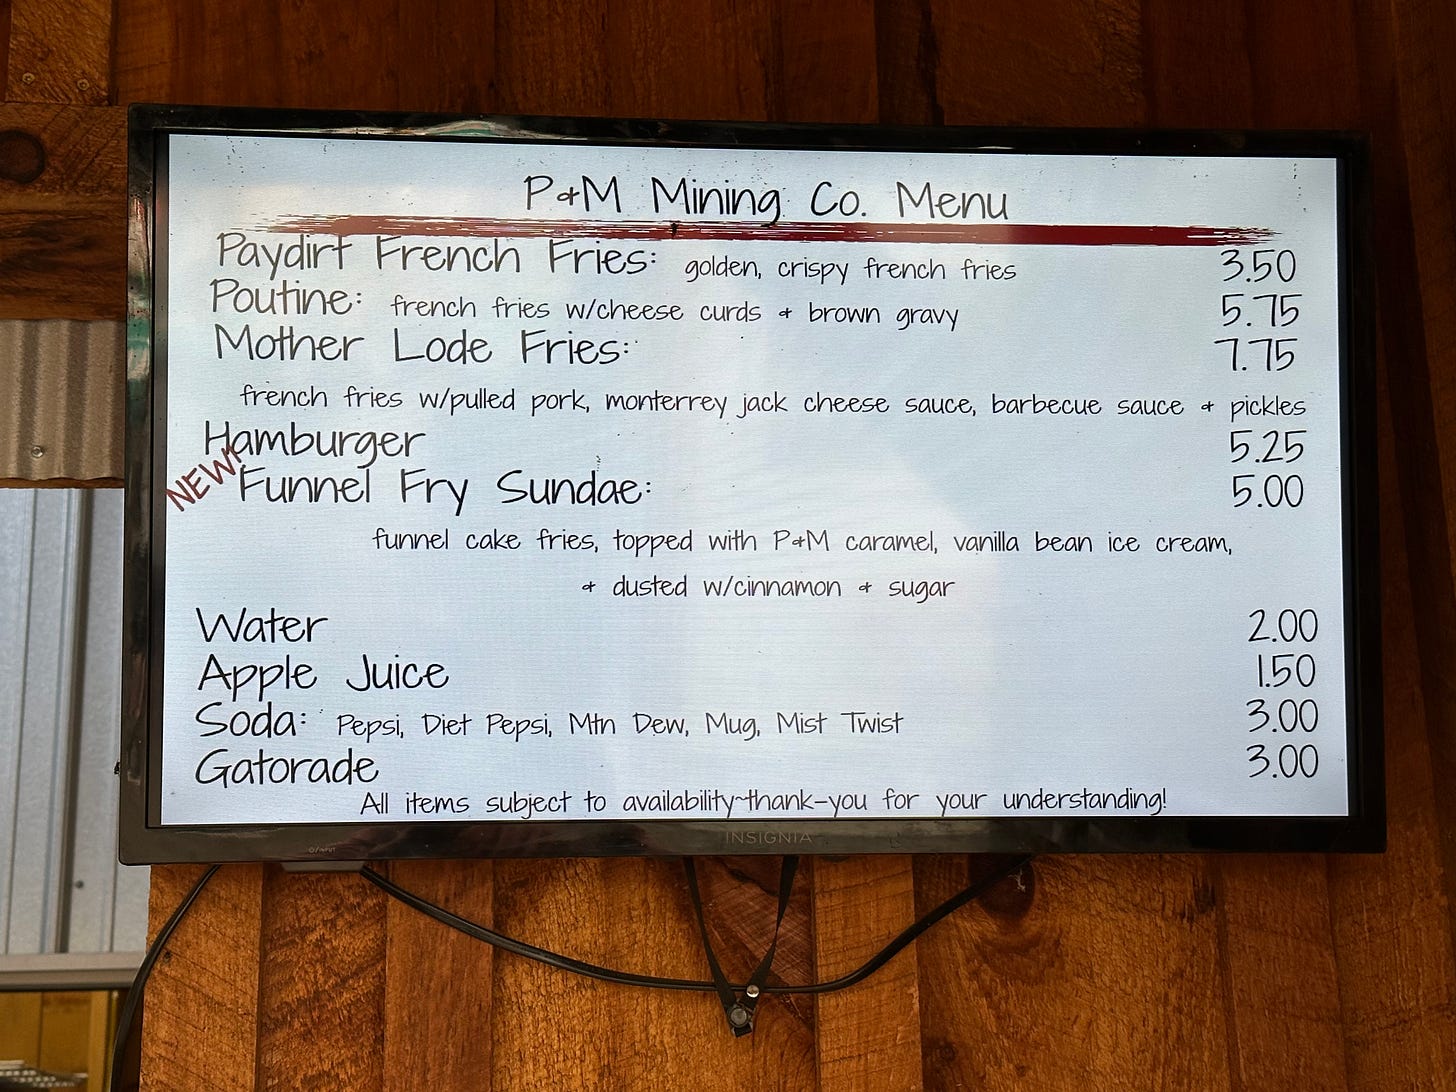 P&M Mining Co. Menu
Paydirt French Fries: golden, crispy french fries 3.50
Poutine: french fries w/cheese curds & brown gravy 5.75
Mother Lode Fries: 7.75
french fries w/pulled pork, monterrey jack cheese sauce, barbecue sauce & pickles
Hamburger 5.25
NEW! Funnel Fry Sundae: 5.00
funnel cake fries, topped with P&M caramel, vanilla bean ice cream,
& dusted w/cinnamon & sugar
Water 2.00
Apple Juice 1.50
Soda: Pepsi, Diet Pepsi, Mtn Dew, Mug, Mist Twist 3.00
Gatorade 3.00
All items subject to availability~thank-you for your understanding!
INSIGNIA